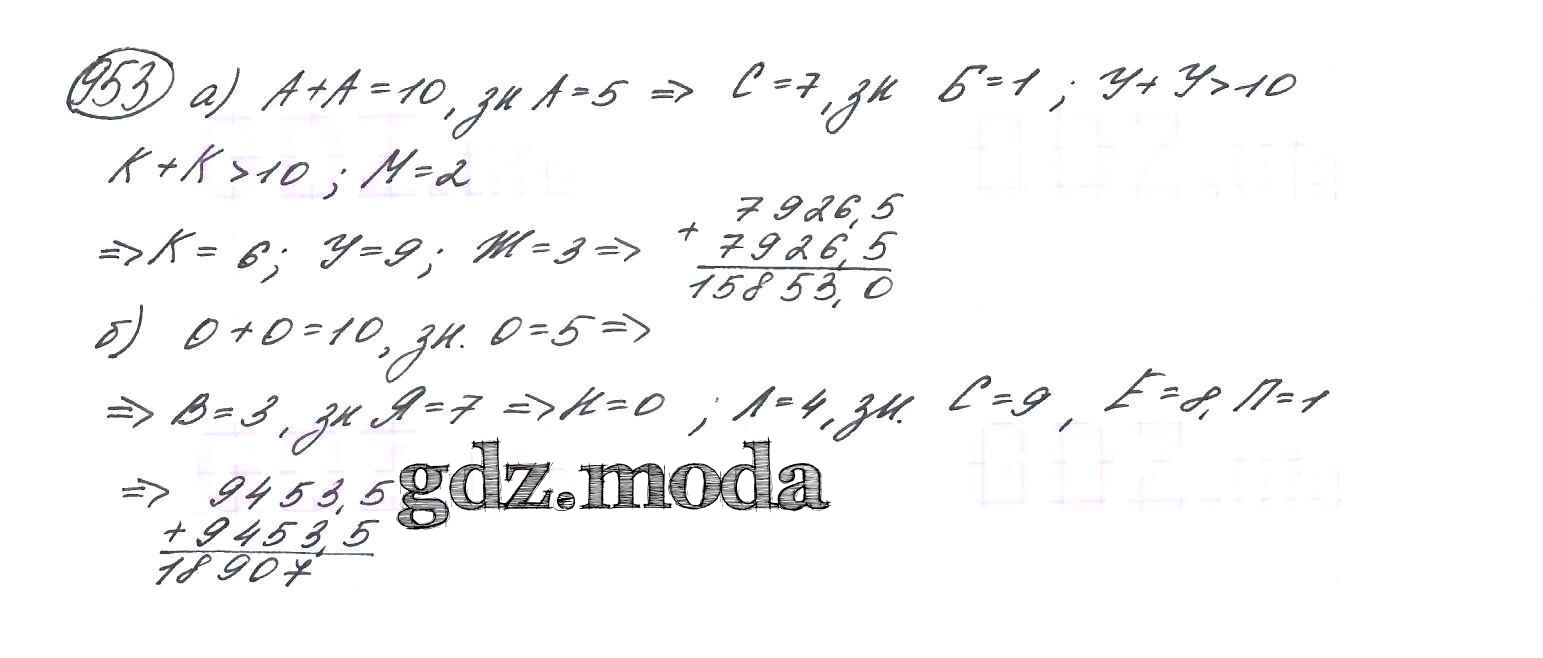 953 а) А+А=10, зн А=5 => С=7, зн Б=1 ; У+У>10
К+К>10 ; М=2
=> К= 6; У=9; Ж=3 =>
7926,5
+ 7926,5
15853,0
б) О+О=10, зн. О=5 =>
=> В=3, зн Я=7 => Н=0 ; Л=4, зн. С=9, Е=8, П=1
=> 9453,5
+9453,5
18907
gdz.moda